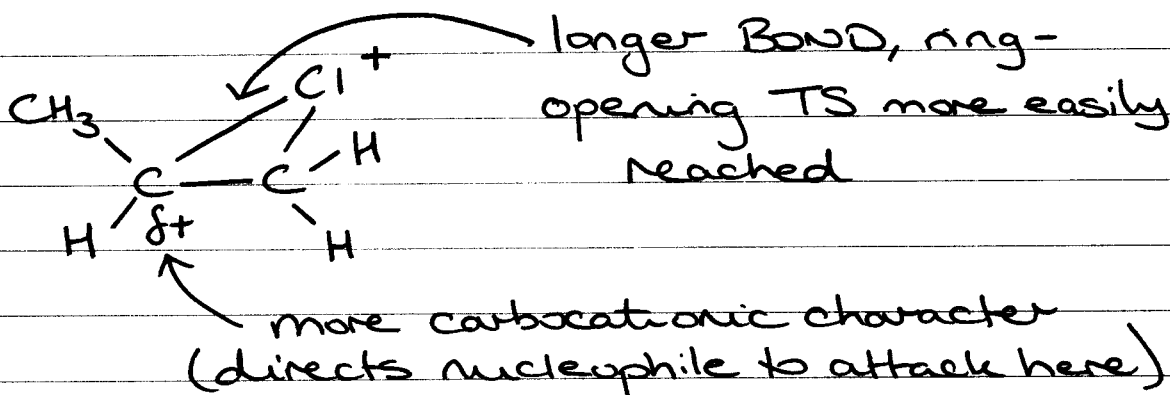 longer BOND, ring-
Cl +
opening TS more easily
CH3
H
reached
C C
H δ+ H
more carbocationic character
(directs nucleophile to attack here)